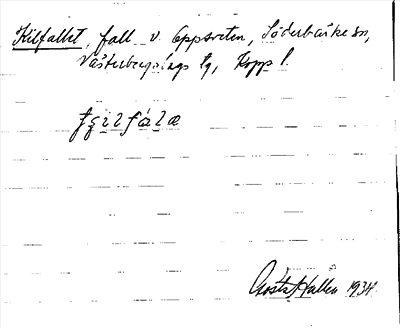 Kilfallet, fall v. Uppsveten, Söderbärke sn,
Västerbergslags tg, Kopp l.
Gösta Hallén 1934